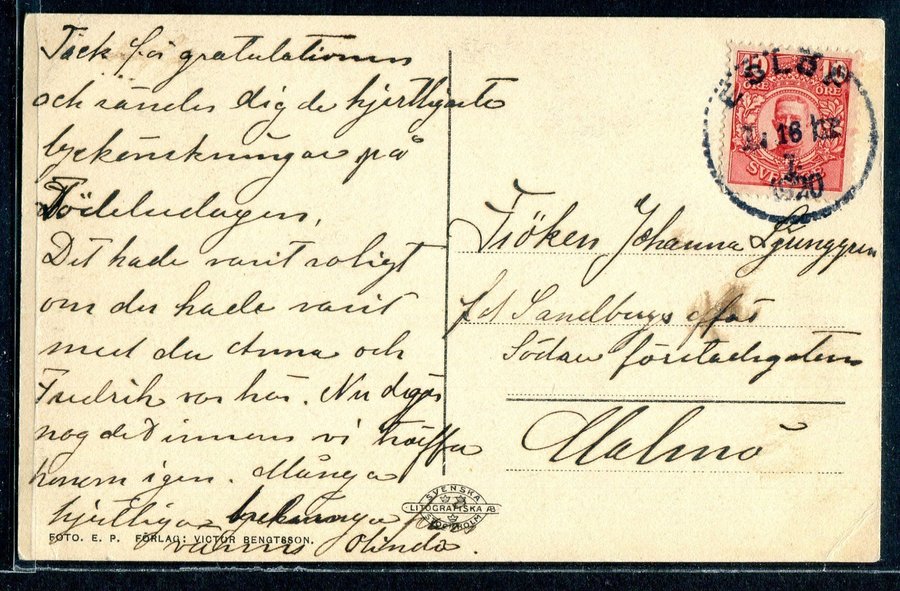 Tack för gratulationen
och sändes dig de hjertligaste
lyckönskningar på
Födelsedagen,
Det hade varit roligt
om du hade varit
med du Anna och
Fredrik var här. Nu dröjs
nog det innens vi träffa
honom igen. Många
hjertliga
vännis Olinda.
FOTO. E. P. FÖRLAG: VICTOR BENGTSSON.
SVENSKA
LITOGRAFISKA AB
STOCKHOLM
ESLÖF
16
20
10 10
ÖRE ÖRE
SVERIGE
Fröken Johanna Ljunggren
Sandbergs
Södra förstadsgatan
Malmö